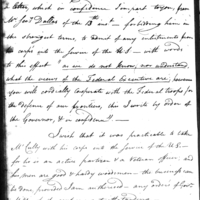 a letter, which in confidence I impart to you, from
Mr. Secy. Dallas of the 15th inst - forbidding him in
the strongest terms, to admit of any enlistments from
his corps into the service of the U.S. - with words
to this effect "as we do not know, nor understand
what the views of the Federal Executive are, however
you will cordially cooperate with the Federal troops for
the defence of our frontiers, this I write by order of
the Governor, & in confidence"! -
I wish that it was practicable to take
Mr. Cully with his corps into the service of the U.S. -
for he is an active partizan & a Veteran officer, and
his men are good & hardy woodsmen - the business can
be done provided I am authorized - any orders of